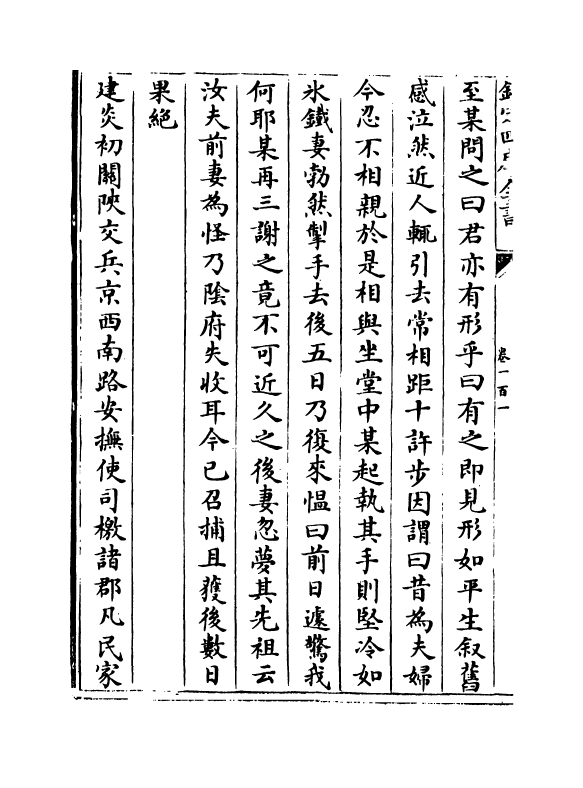 欽定四庫全書
卷一百一
至某問之曰君亦有形乎曰有之即見形如平生叙舊
感泣然近人輒引去常相距十許步因謂曰昔為夫婦
今忍不相親於是相與坐堂中某起執其手則堅冷如
氷鐵妻勃然掣手去後五日乃復來愠曰前日遽驚我
何耶某再三謝之竟不可近久之後妻忽夢其先祖云
汝夫前妻為怪乃隂府失收耳今已召捕且獲後數日
果絶
建炎初關陜交兵京西南路安撫使司檄諸郡凡民家